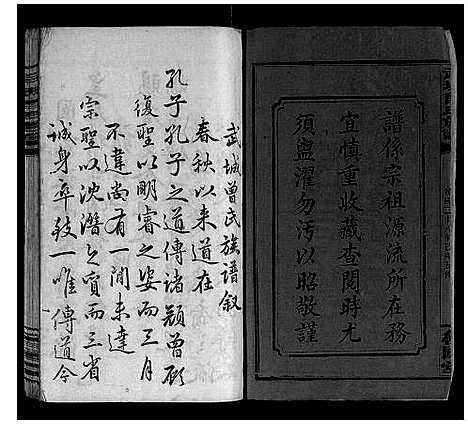 譜係宗祖源流所在務
宜慎重收藏查閱時尤
須盥濯勿污以昭敬謹
武城曾氏族譜敘
春秋以来道在
孔子孔子之道傳諸顏曾顧
復聖以明睿之姿而三月
不違尚有一間未達
宗聖以沈潛之質而三省
誠身卒致一唯傳道今